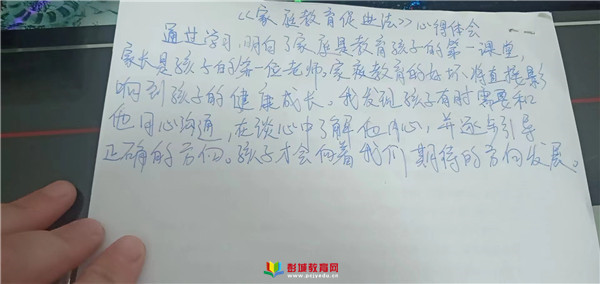 《家庭教育促进法》心得体会
通过学习,明白了家庭是教育孩子的第一课堂,
家长是孩子的第一位老师,家庭教育的好坏将直接影
响到孩子的健康成长。我发现孩子有时需要和
他用心沟通,在谈心中了解他内心,并逐步引导
正确的方向。孩子才会向着我们期待的方向发展。
彭城教育网
www.pcjyedu.cn